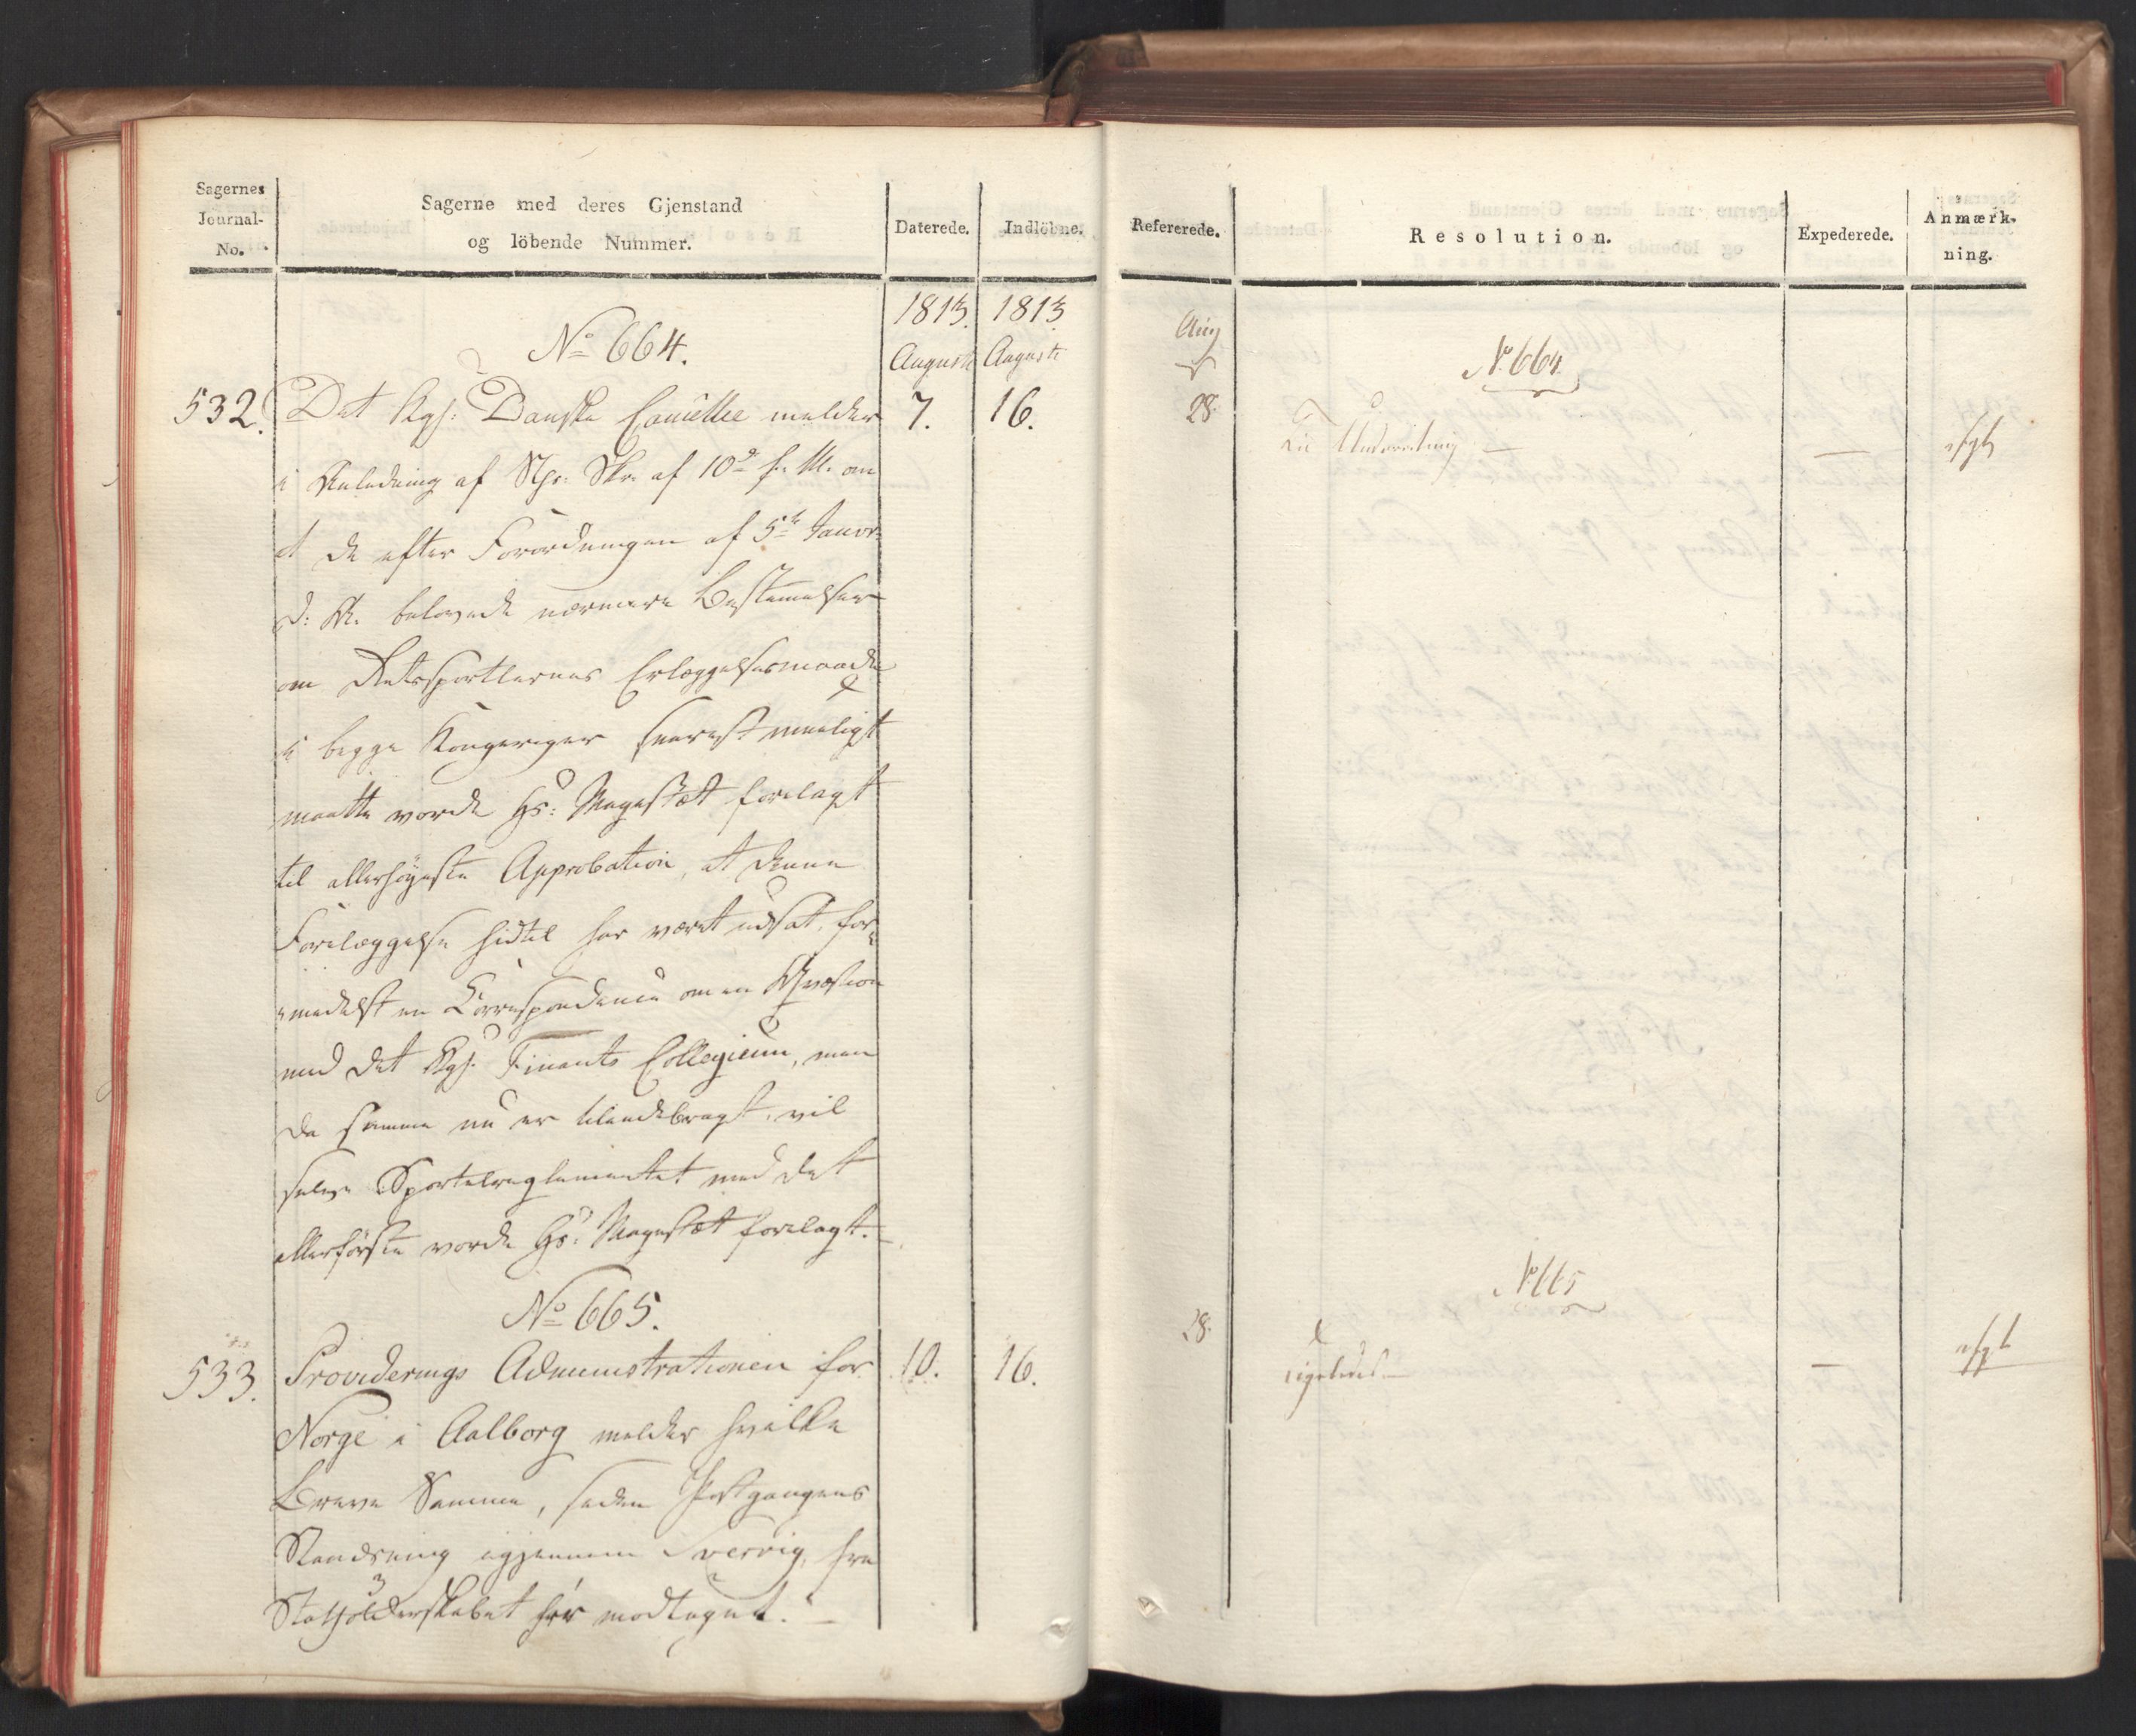 Sagernes
Journal-
No.
Sagerne med deres Gjenstand
og löbende Nummer.
Daterede.
Indlöbne.
1813. 1813.
Auguste Auguste
No 664.
532. Det Kgl: Danske Cancellie melder 7. 16.
i Anledning af Stgr: Skr. af 10de f. M. om
at de efter Forordningen af 5te Januar
d: A. belovede nærmere Bestemmelser
om Retssportlernes Erlæggelsesmaade
i begge Kongeriger snarest mueligst
maatte vorde Hs: Magestæt forelagt
til allerhøyeste Approbation, at denne
Forelæggelse hidtil har været udsat, for-
medelst en Correspondence om en Qvæstion
med det Kgl. Finants Collegium, men
da samme nu er tilendebragt, vil
selve Sportelreglementet med det
allerførste vorde Hs: Magestæt forelagt.
No 665.
533. Providerings Administrationen for 10. 16.
Norge i Aalborg melder hvilke
Breve Samme, siden Postgangens
Standsning igjennem Sverrig, fra
Statholderskabet har modtaget.
Refererede.
Resolution.
Expederede.
Anmærk-
ning.
Aug
No 664
28.
Til Underretning —
No 665
28.
ligeledes —